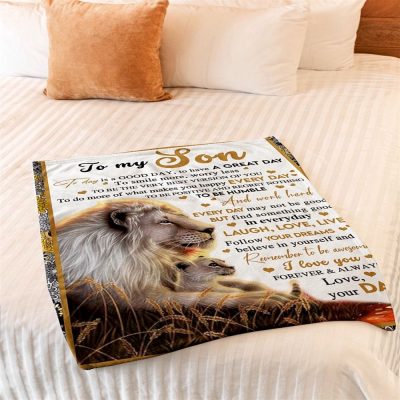 To my Son
To day is a GOOD DAY, to have A GREAT DAY
To smile more, worry less
TO BE THE VERY BEST VERSION OF YOU
To do more of what makes you happy EVERY DAY
TO BE POSITIVE AND REGRET NOTHING
TO BE HUMBLE
And work hard
EVERY DAY may not be good
BUT find something good
in everyday
LAUGH, LOVE, LIVE
Follow YOUR DREAMS
believe in yourself and
Remember to be awesome
I love you
FOREVER & ALWAY
Love,
your DA